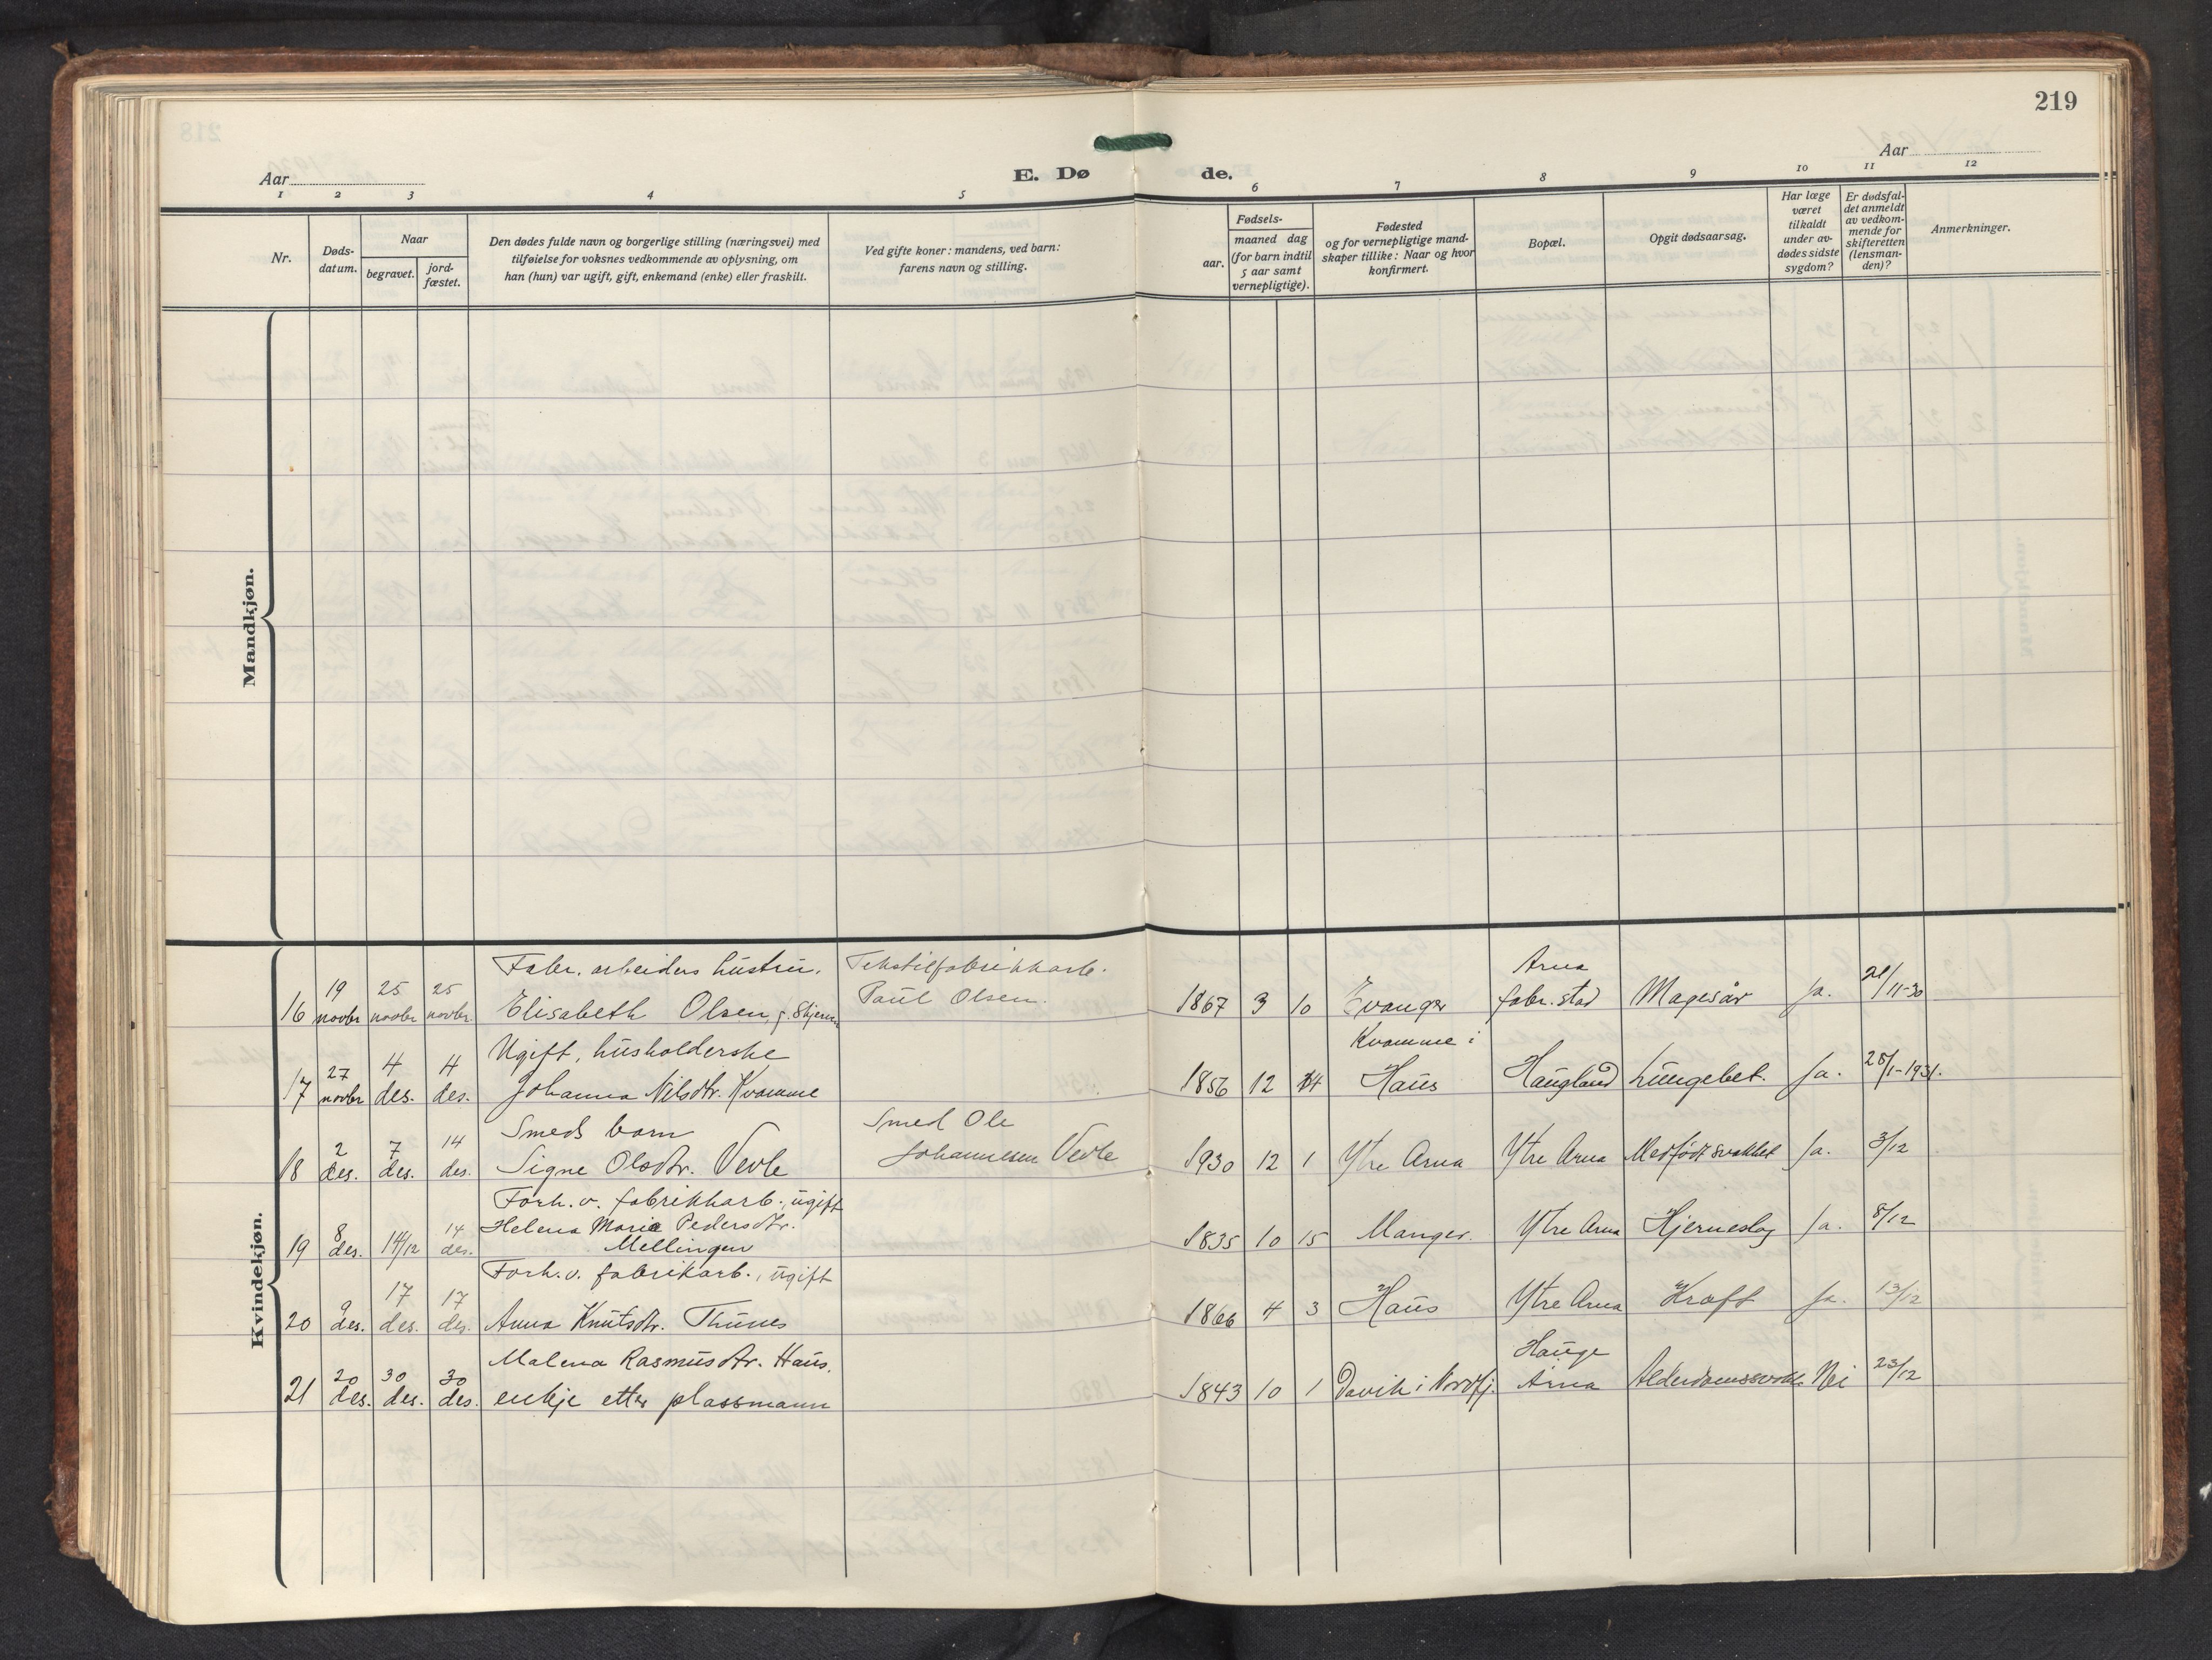 219
Aar
E. Dø
de.
Aar
1 2 3 4 5 6 7 8 9 10 11 12
Nr.
Døds-
datum.
Naar
begravet.
jord-
fæstet.
Den dødes fulde navn og borgerlige stilling (næringsvei) med
tilføielse for voksnes vedkommende av oplysning, om
han (hun) var ugift, gift, enkemand (enke) eller fraskilt.
Ved gifte koner: mandens, ved barn:
farens navn og stilling.
Fødsels-
aar.
maaned dag
(for barn indtil
5 aar samt
vernepligtige).
Fødested
og for vernepligtige mand-
skaper tillike: Naar og hvor
konfirmert.
Bopæl.
Opgit dødsaarsag.
Har læge
været
tilkaldt
under av-
dødes sidste
sygdom?
Er dødsfal-
det anmeldt
av vedkom-
mende for
skifteretten
(lensman-
den)?
Anmerkninger.
Mandkjøn.
Kvindekjøn.
Fabr. arbeiders hustru. Tekstilfabrikkarb. Arna
16 19 novbr 25 novbr 25 novbr. Elisabeth Olsen, f. Paul Olsen. 1867 3 10 Evanger fabr. stad Magesår ja. 21/11-30
Ugift, husholderske Kvamme i
17 27 novbr 4 des. 4 des. Johanna Nilsdtr. Kvamme 1856 12 14 Haus Haugland Lungebet. Ja. 28/1-1931.
Smeds barn Smed Ole
18 2 des. 7 des. 14 des. Signe Olsdtr. Vevle Johannesen Vevle 1930 12 1 Ytre Arna Ytre Arna Medfødt svakhet Ja. 3/12
Forh. v. fabrikkarb., ugift
Helena Maria Pedersdtr.
19 8 des. 14/12 14 des. Mellingen 1835 10 15 Manger. Ytre Arna Hjerneslag Ja. 8/12
Forh. v. fabrikarb., ugift
20 9 des. 17 des. 17 des. Anna Knutsdtr. Thunes 1866 4 3 Haus Ytre Arna Kraft Ja. 13/12
Malena Rasmusdtr. Haus. Hauge
21 20 des. 30 des. 30 des. enkje etter plassmann 1843 10 1 Davik i Nordfj. Arna Alderdomssvakh. Nei 23/12